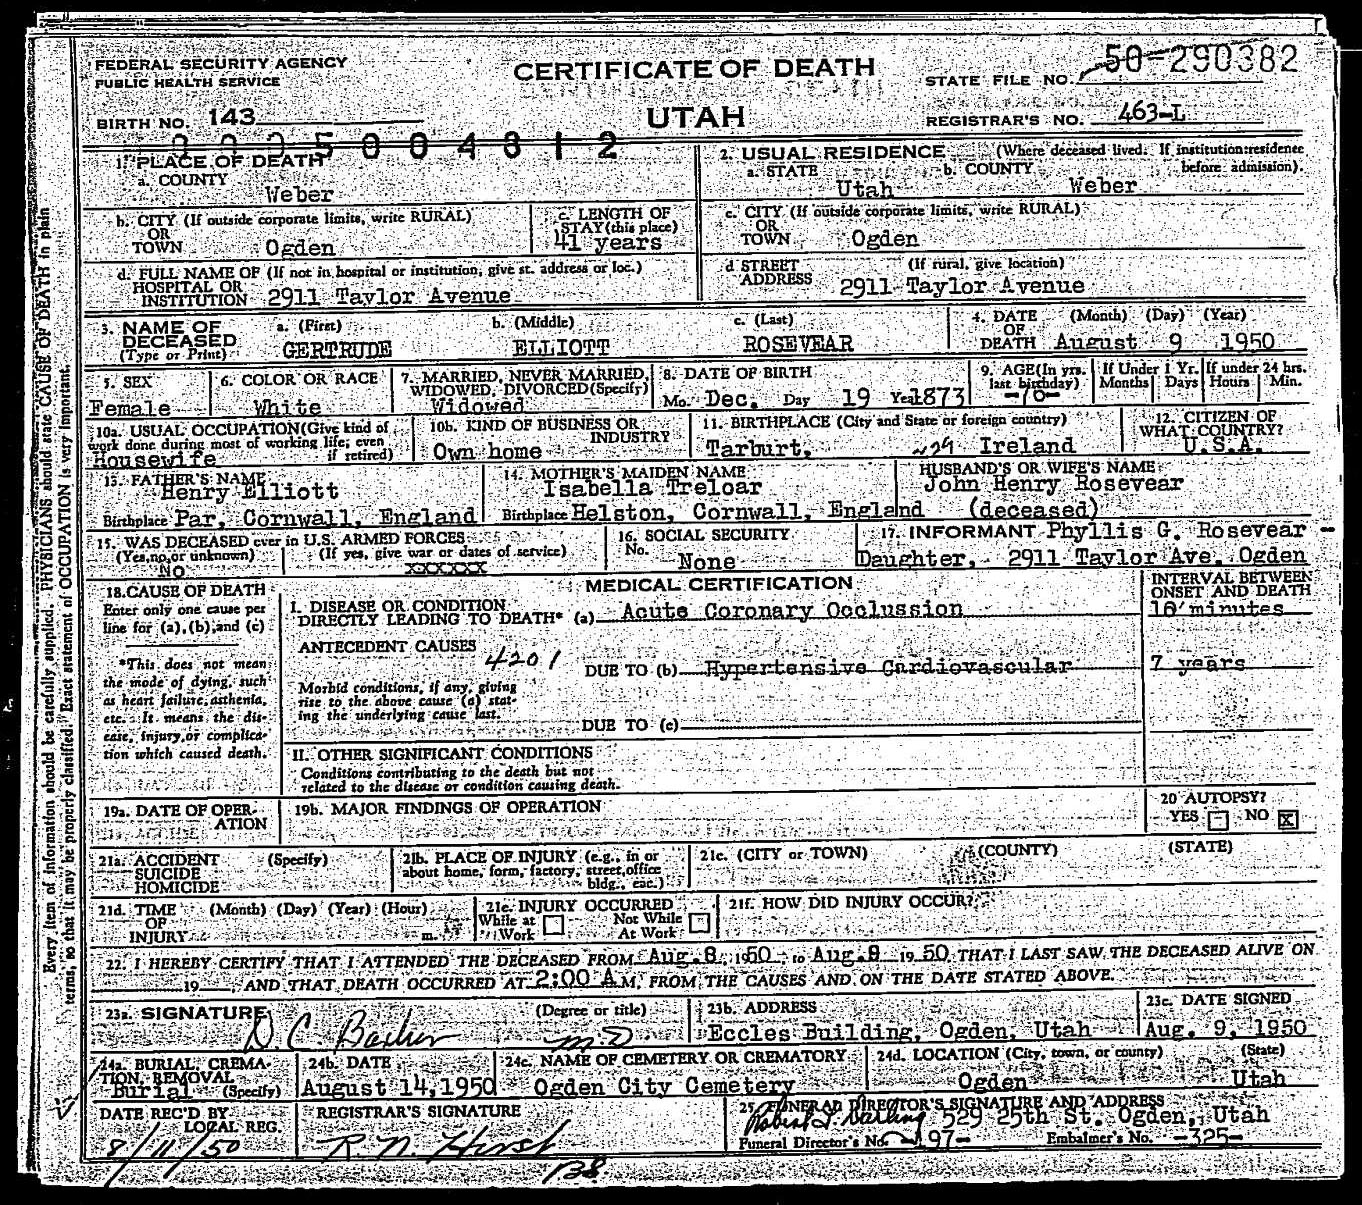 FEDERAL SECURITY AGENCY
PUBLIC HEALTH SERVICE
BIRTH NO. 143
CERTIFICATE OF DEATH
UTAH
STATE FILE NO. 50-290382
REGISTRAR'S NO. 463-L
1. PLACE OF DEATH
a. COUNTY
Weber
2. USUAL RESIDENCE (Where deceased lived. If institution: residence before admission).
a. STATE Utah
b. COUNTY Weber
b. CITY (If outside corporate limits, write RURAL)
OR
TOWN Ogden
c. LENGTH OF
STAY (this place)
41 years
c. CITY (If outside corporate limits, write RURAL)
OR
TOWN Ogden
d. FULL NAME OF (If not in hospital or institution, give st. address or loc.)
HOSPITAL OR
INSTITUTION 2911 Taylor Avenue
d STREET (If rural, give location)
ADDRESS 2911 Taylor Avenue
3. NAME OF DECEASED
(Type or Print)
a. (First)
GERTRUDE
b. (Middle)
ELLIOTT
c. (Last)
ROSEVEAR
4. DATE OF DEATH (Month) (Day) (Year)
August 9 1950
5. SEX
Female
6. COLOR OR RACE
White
7. MARRIED, NEVER MARRIED,
WIDOWED, DIVORCED (Specify)
Widowed
8. DATE OF BIRTH
Mo. Dec. Day 19 Year 1873
9. AGE (In yrs. last birthday)
-76-
If Under 1 Yr. Months Days
If under 24 hrs. Hours Min.
10a. USUAL OCCUPATION (Give kind of
work done during most of working life; even
if retired)
Housewife
10b. KIND OF BUSINESS OR
INDUSTRY
Own home
11. BIRTHPLACE (City and State or foreign country)
Tarburt, Ireland
12. CITIZEN OF
WHAT COUNTRY?
U.S.A.
13. FATHER'S NAME
Henry Elliott
Birthplace Par, Cornwall, England
14. MOTHER'S MAIDEN NAME
Isabella Treloar
Birthplace Helston, Cornwall, England
HUSBAND'S OR WIFE'S NAME
John Henry Rosevear
(deceased)
15. WAS DECEASED ever in U.S. ARMED FORCES
(Yes, no, or unknown) (If yes, give war or dates of service)
No XXXXXX
16. SOCIAL SECURITY
No. None
17. INFORMANT Phyllis G. Rosevear -
Daughter, 2911 Taylor Ave. Ogden
18. CAUSE OF DEATH
Enter only one cause per
line for (a), (b), and (c)
*This does not mean
the mode of dying, such
as heart failure, asthenia,
etc. It means the dis-
ease, injury, or complica-
tion which caused death.
MEDICAL CERTIFICATION
INTERVAL BETWEEN
ONSET AND DEATH
I. DISEASE OR CONDITION
DIRECTLY LEADING TO DEATH* (a) Acute Coronary Occlussion
10 minutes
ANTECEDENT CAUSES
4201
DUE TO (b) Hypertensive Cardiovascular
7 years
Morbid conditions, if any, giving
rise to the above cause (a) stat-
ing the underlying cause last.
DUE TO (c)
II. OTHER SIGNIFICANT CONDITIONS
Conditions contributing to the death but not
related to the disease or condition causing death.
19a. DATE OF OPER-
ATION
19b. MAJOR FINDINGS OF OPERATION
20 AUTOPSY?
YES NO X
21a. ACCIDENT (Specify)
SUICIDE
HOMICIDE
21b. PLACE OF INJURY (e.g., in or
about home, form, factory, street, office
bldg., etc.)
21c. (CITY or TOWN) (COUNTY) (STATE)
21d. TIME (Month) (Day) (Year) (Hour)
OF
INJURY m.
21e. INJURY OCCURRED
While at Work Not While At Work
21f. HOW DID INJURY OCCUR?
22. I HEREBY CERTIFY THAT I ATTENDED THE DECEASED FROM Aug. 8, 1950 to Aug. 9 1950 THAT I LAST SAW THE DECEASED ALIVE ON
19 , AND THAT DEATH OCCURRED AT 2:00 A M, FROM THE CAUSES AND ON THE DATE STATED ABOVE.
23a. SIGNATURE (Degree or title)
M.D.
23b. ADDRESS
Eccles Building, Ogden, Utah
23c. DATE SIGNED
Aug. 9, 1950
24a. BURIAL, CREMA-
TION, REMOVAL
Burial (Specify)
24b. DATE
August 14, 1950
24c. NAME OF CEMETERY OR CREMATORY
Ogden City Cemetery
24d. LOCATION (City, town, or county) (State)
Ogden Utah
DATE REC'D BY
LOCAL REG.
8/11/50
REGISTRAR'S SIGNATURE
R. N. Hirst
25. FUNERAL DIRECTOR'S SIGNATURE AND ADDRESS
529 25th St. Ogden, Utah
Funeral Director's No. 197-
Embalmer's No. -325-
Every item of information should be carefully supplied. PHYSICIANS should state CAUSE OF DEATH in plain
terms, so that it may be properly classified. Exact statement of OCCUPATION is very important.